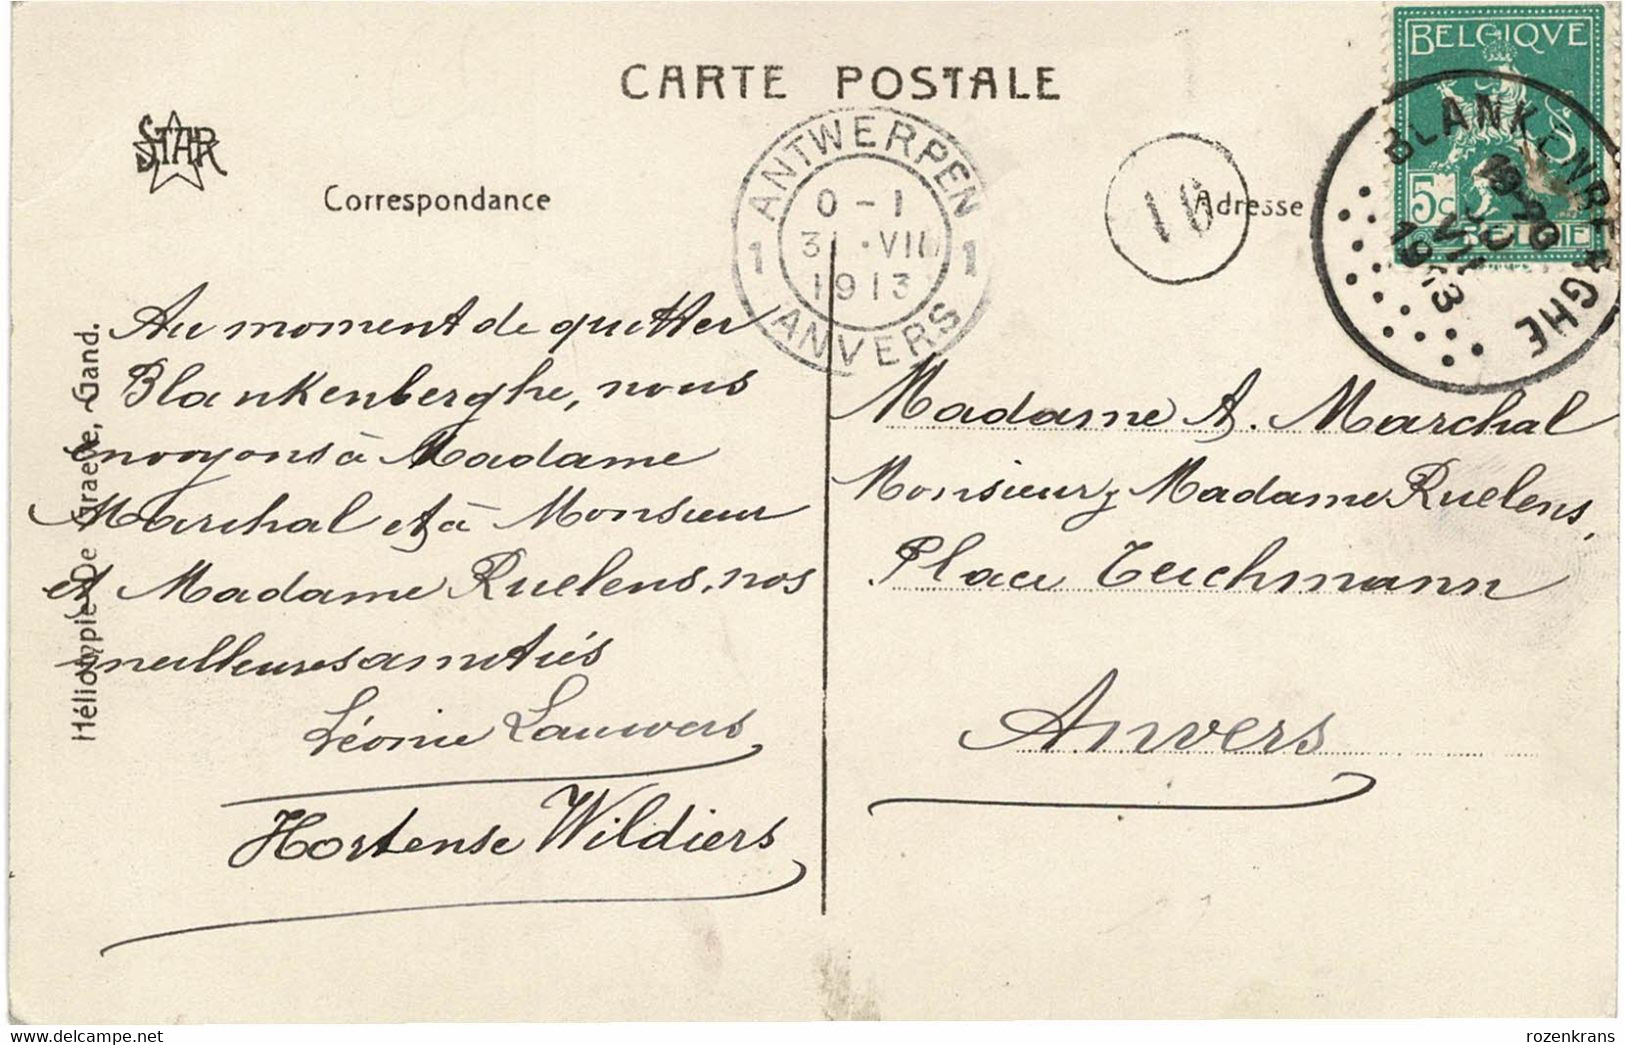 CARTE POSTALE
STAR
Correspondance
Adresse
BELGIQVE
5c
BELGIE
BLANKENBERGHE
19-20
VII
1913
ANTWERPEN
1 0-1 1
31.VII
1913
ANVERS
16
Au moment de quitter
Blankenberghe, nous
envoyons à Madame
Marchal et à Monsieur
et Madame Ruelens, nos
meilleures amitiés
Léonie Lauwers
Hortense Wildiers
Madame A. Marchal
Monsieur, Madame Ruelens,
Place Teichmann
Anvers
Héliotypie De Graeve, Gand.
rozenkrans